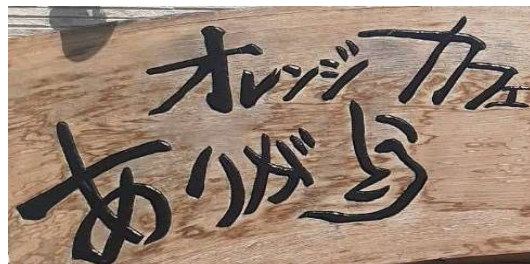 オレンジカフェ
ありがとう